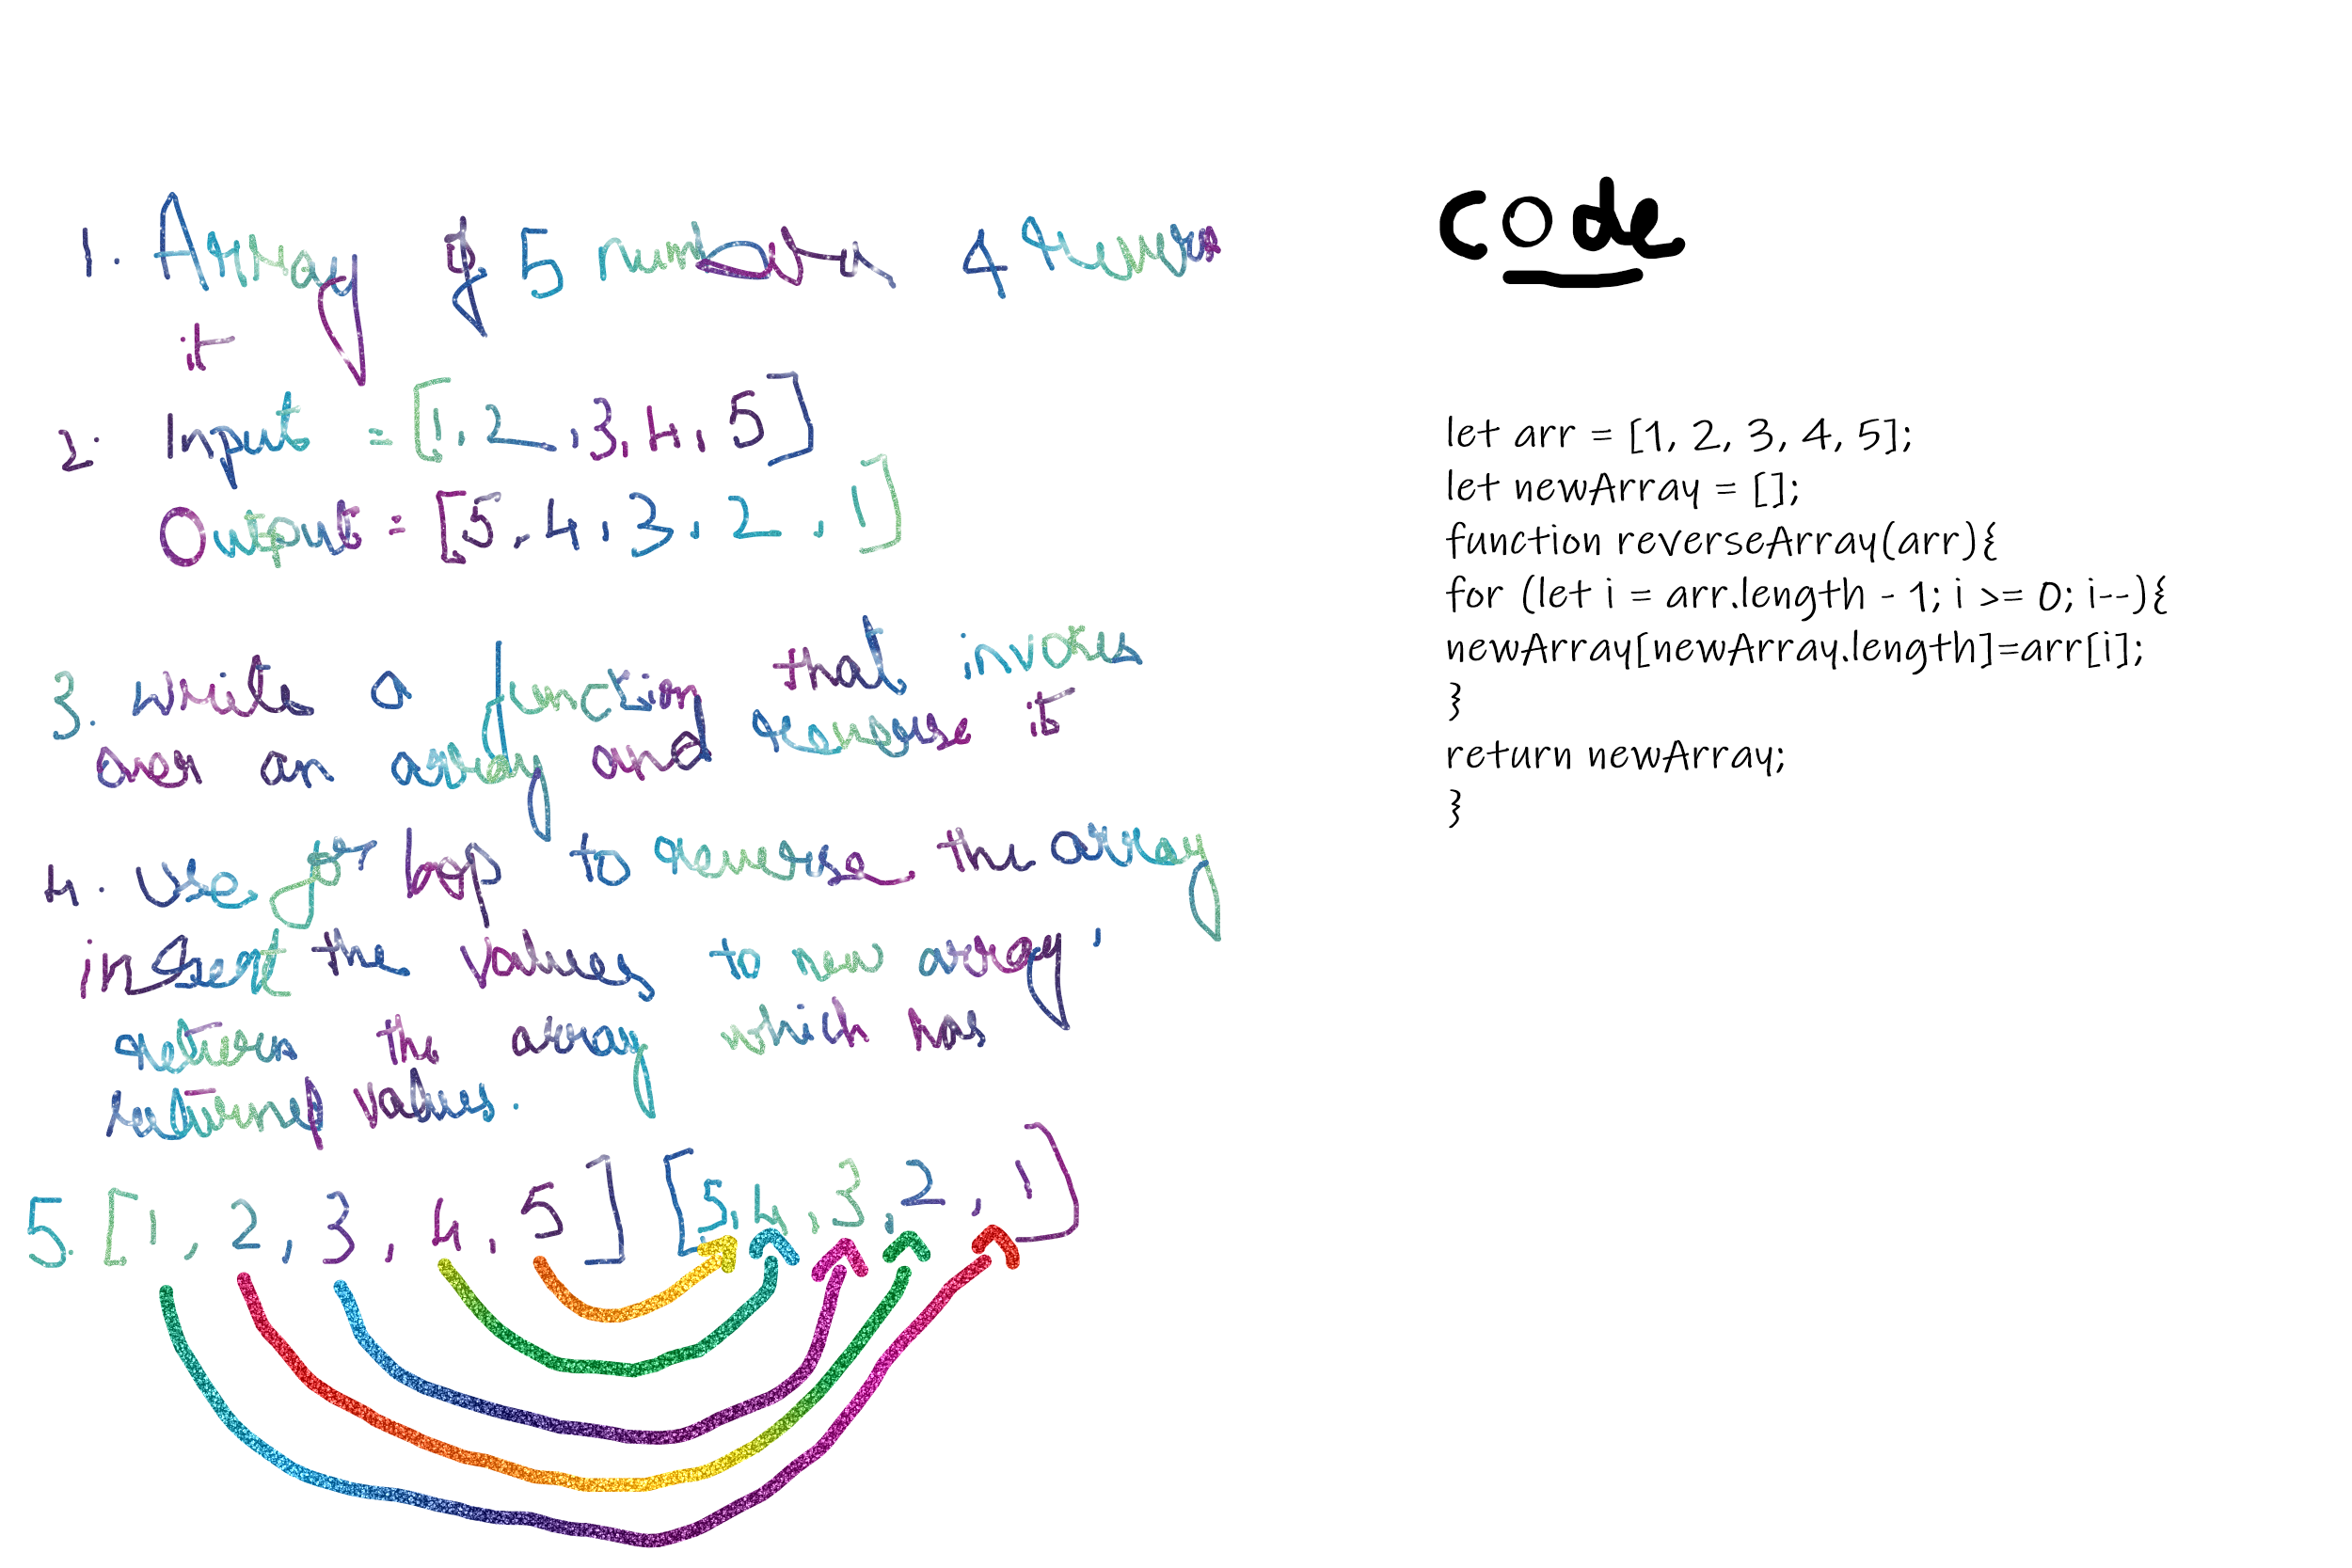 1. Array of 5 numbers & reverse
it
2. Input = [1, 2, 3, 4, 5]
Output = [5, 4, 3, 2, 1]
3. write a function that invokes
over an array and reverse it
4. Use for loop to reverse the array
insert the values to new array,
return the array which has
returned values.
5. [1, 2, 3, 4, 5] [5, 4, 3, 2, 1]
code
let arr = [1, 2, 3, 4, 5];
let newArray = [];
function reverseArray(arr){
for (let i = arr.length - 1; i >= 0; i--){
newArray[newArray.length]=arr[i];
}
return newArray;
}